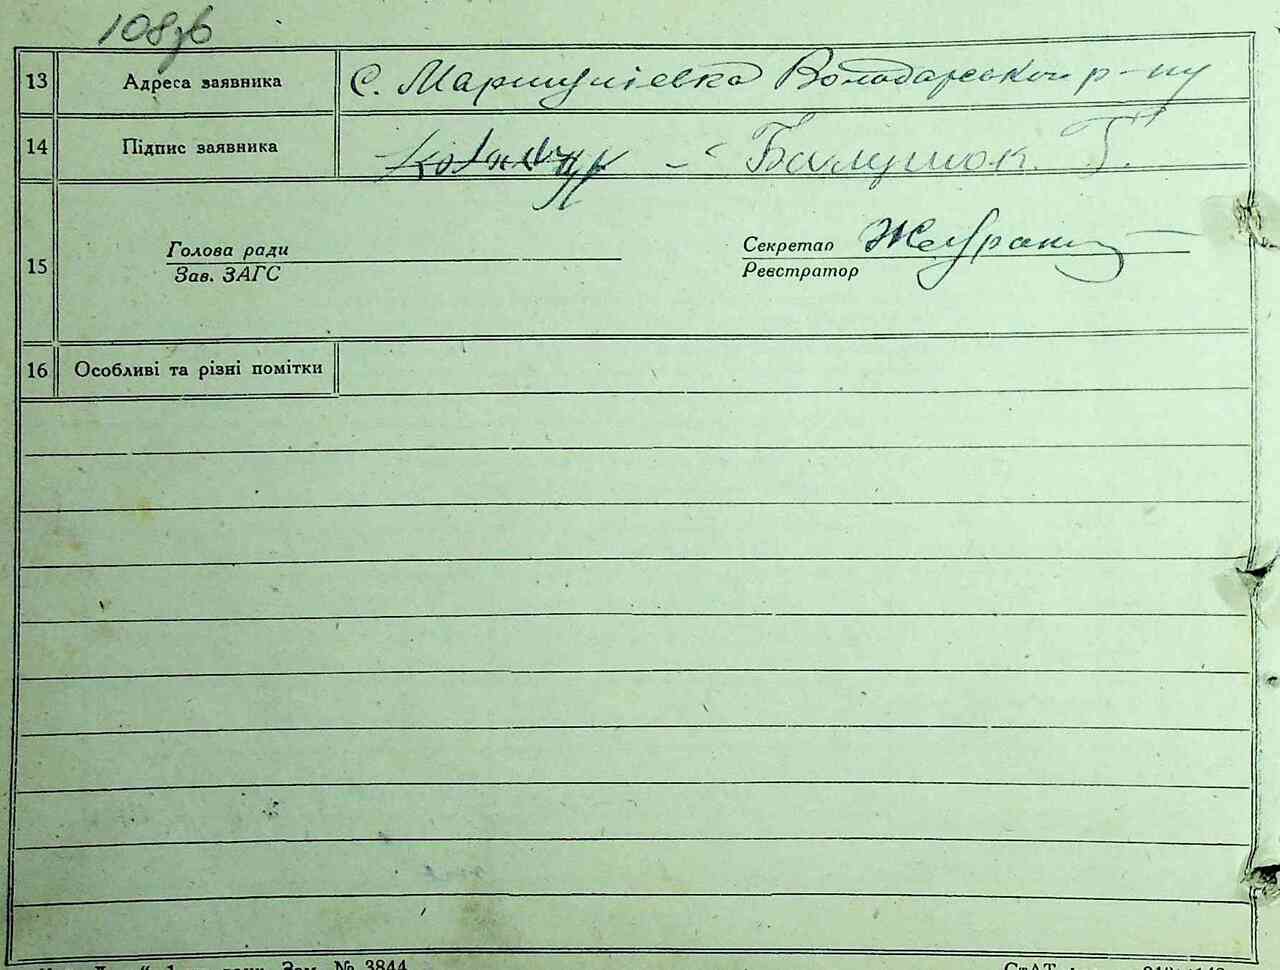 108зв
13 Адреса заявника С. Маршулієвка Володарського р-ну
14 Підпис заявника - Балушок Г.
Голова ради Секретар
15
Зав. ЗАГС Реєстратор
16 Особливі та різні помітки
Зам. № 3844